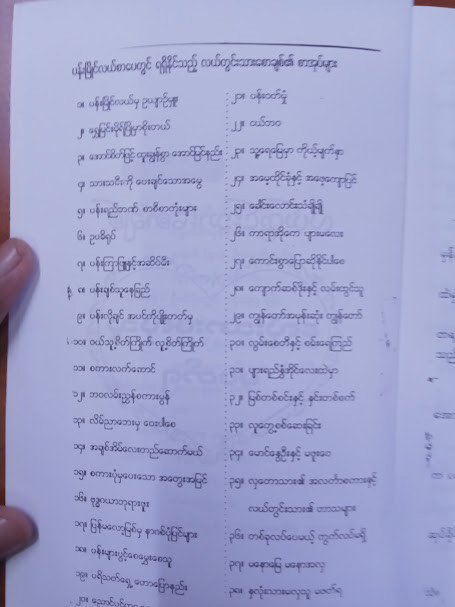 ပန်းမြိုင်လယ်စာပေတွင် ရရှိနိုင်သည့် လယ်တွင်းသားစောချစ်၏ စာအုပ်များ
၁။ ပန်းမြိုင်လယ်မှ ဥယျာဉ်မှူး
၂။ ရွှေပြင်းမိုရ်မြို့မှာစိုးတယ်
၃။ အောင်စိတ်ဖြင့် ထူးချွန်စွာ အောင်မြင်နည်း
၄။ သားသမီးကို ပေးချင်သောအမွေ
၅။ ပန်းရည်ဘဏ် စာစီစာကုံးများ
၆။ ဥပဓိရုပ်
၇။ ပန်းကြာဖြူနှင့်အဆိပ်မီး
၈။ ပန်းချစ်သူနေခြည်
၉။ ပန်းလိုချင် အပင်ကိုပျိုးတတ်မှ
၁၀။ ဝယ်သူ့စိတ်ကြိုက် လူ့စိတ်ကြိုက်
၁၁။ စကားလက်ဆောင်
၁၂။ ဘဝလမ်းညွှန်စကားမွန်
၁၃။ လိမ်ညာဘေးမှ ဝေးပါစေ
၁၄။ အချစ်အိမ်လေးတည်ဆောက်မယ်
၁၅။ စကားပုံမှပေးသော အတွေးအမြင်
၁၆။ ဗုဒ္ဓဂယာဘုရားဖူး
၁၇။ ပြန်မလော့မြစ်မှ နာဂစ်ပုံပြင်များ
၁၈။ ပန်းများပွင့်စေမွှေးစေသူ
၁၉။ ပရိသတ်ရှေ့ ဟောပြောနည်း
၂၁။ ပန်းဝတ်မှုံ
၂၂။ ငယ်ဘဝ
၂၃။ သူ့ရေမြေမှာ ကိုယ့်မျက်နှာ
၂၄။ အမေ့ထိုင်ခုံနှင့် အဝေးကျောပြင်
၂၅။ ခေါင်းလောင်းသံချိုချို
၂၆။ ကာရာအိုကေ ပျားမလေး
၂၇။ ကောင်းစွာပြောဆိုနိုင်ပါစေ
၂၈။ ကျောက်ဆစ်ဒိုးနှင့် လမ်းထွင်သူ
၂၉။ ကျွန်တော်အမုန်းဆုံး ကျွန်တော်
၃၀။ လွမ်းစေတီနှင့် စမ်းရေကြည်
၃၁။ ပျားရည်နှံအိုင်လေးထဲမှာ
၃၂။ မြစ်တစ်စင်းနှင့် နှင်းတစ်စက်
၃၃။ လူတွေ့စစ်ဆေးခြင်း
၃၄။ မောင်နွေဦးနှင့် မဖူးဝေ
၃၅။ လှတောသား၏ အလင်္ကာစကားနှင့်
လယ်တွင်းသား၏ ဘာသာများ
၃၆။ တစ်ခုလပ်ပေမယ့် ကွက်လပ်မရှိ
၃၇။ မနောမြေ မနောအလှ
၃၈။ နှလုံးသားမလှသူ